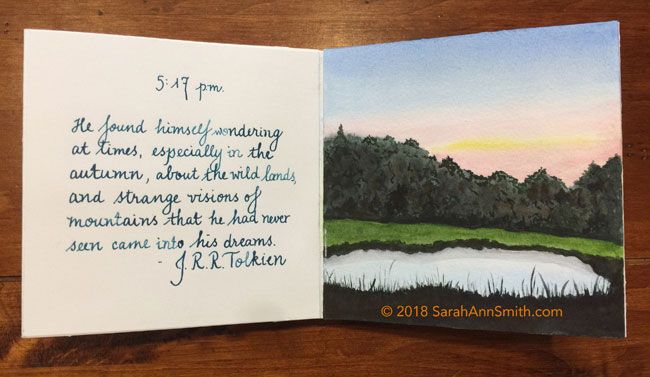 5:17 pm.
He found himself wondering
at times, especially in the
autumn, about the wild lands,
and strange visions of
mountains that he had never
seen came into his dreams.
- J.R.R. Tolkien
© 2018 SarahAnnSmith.com